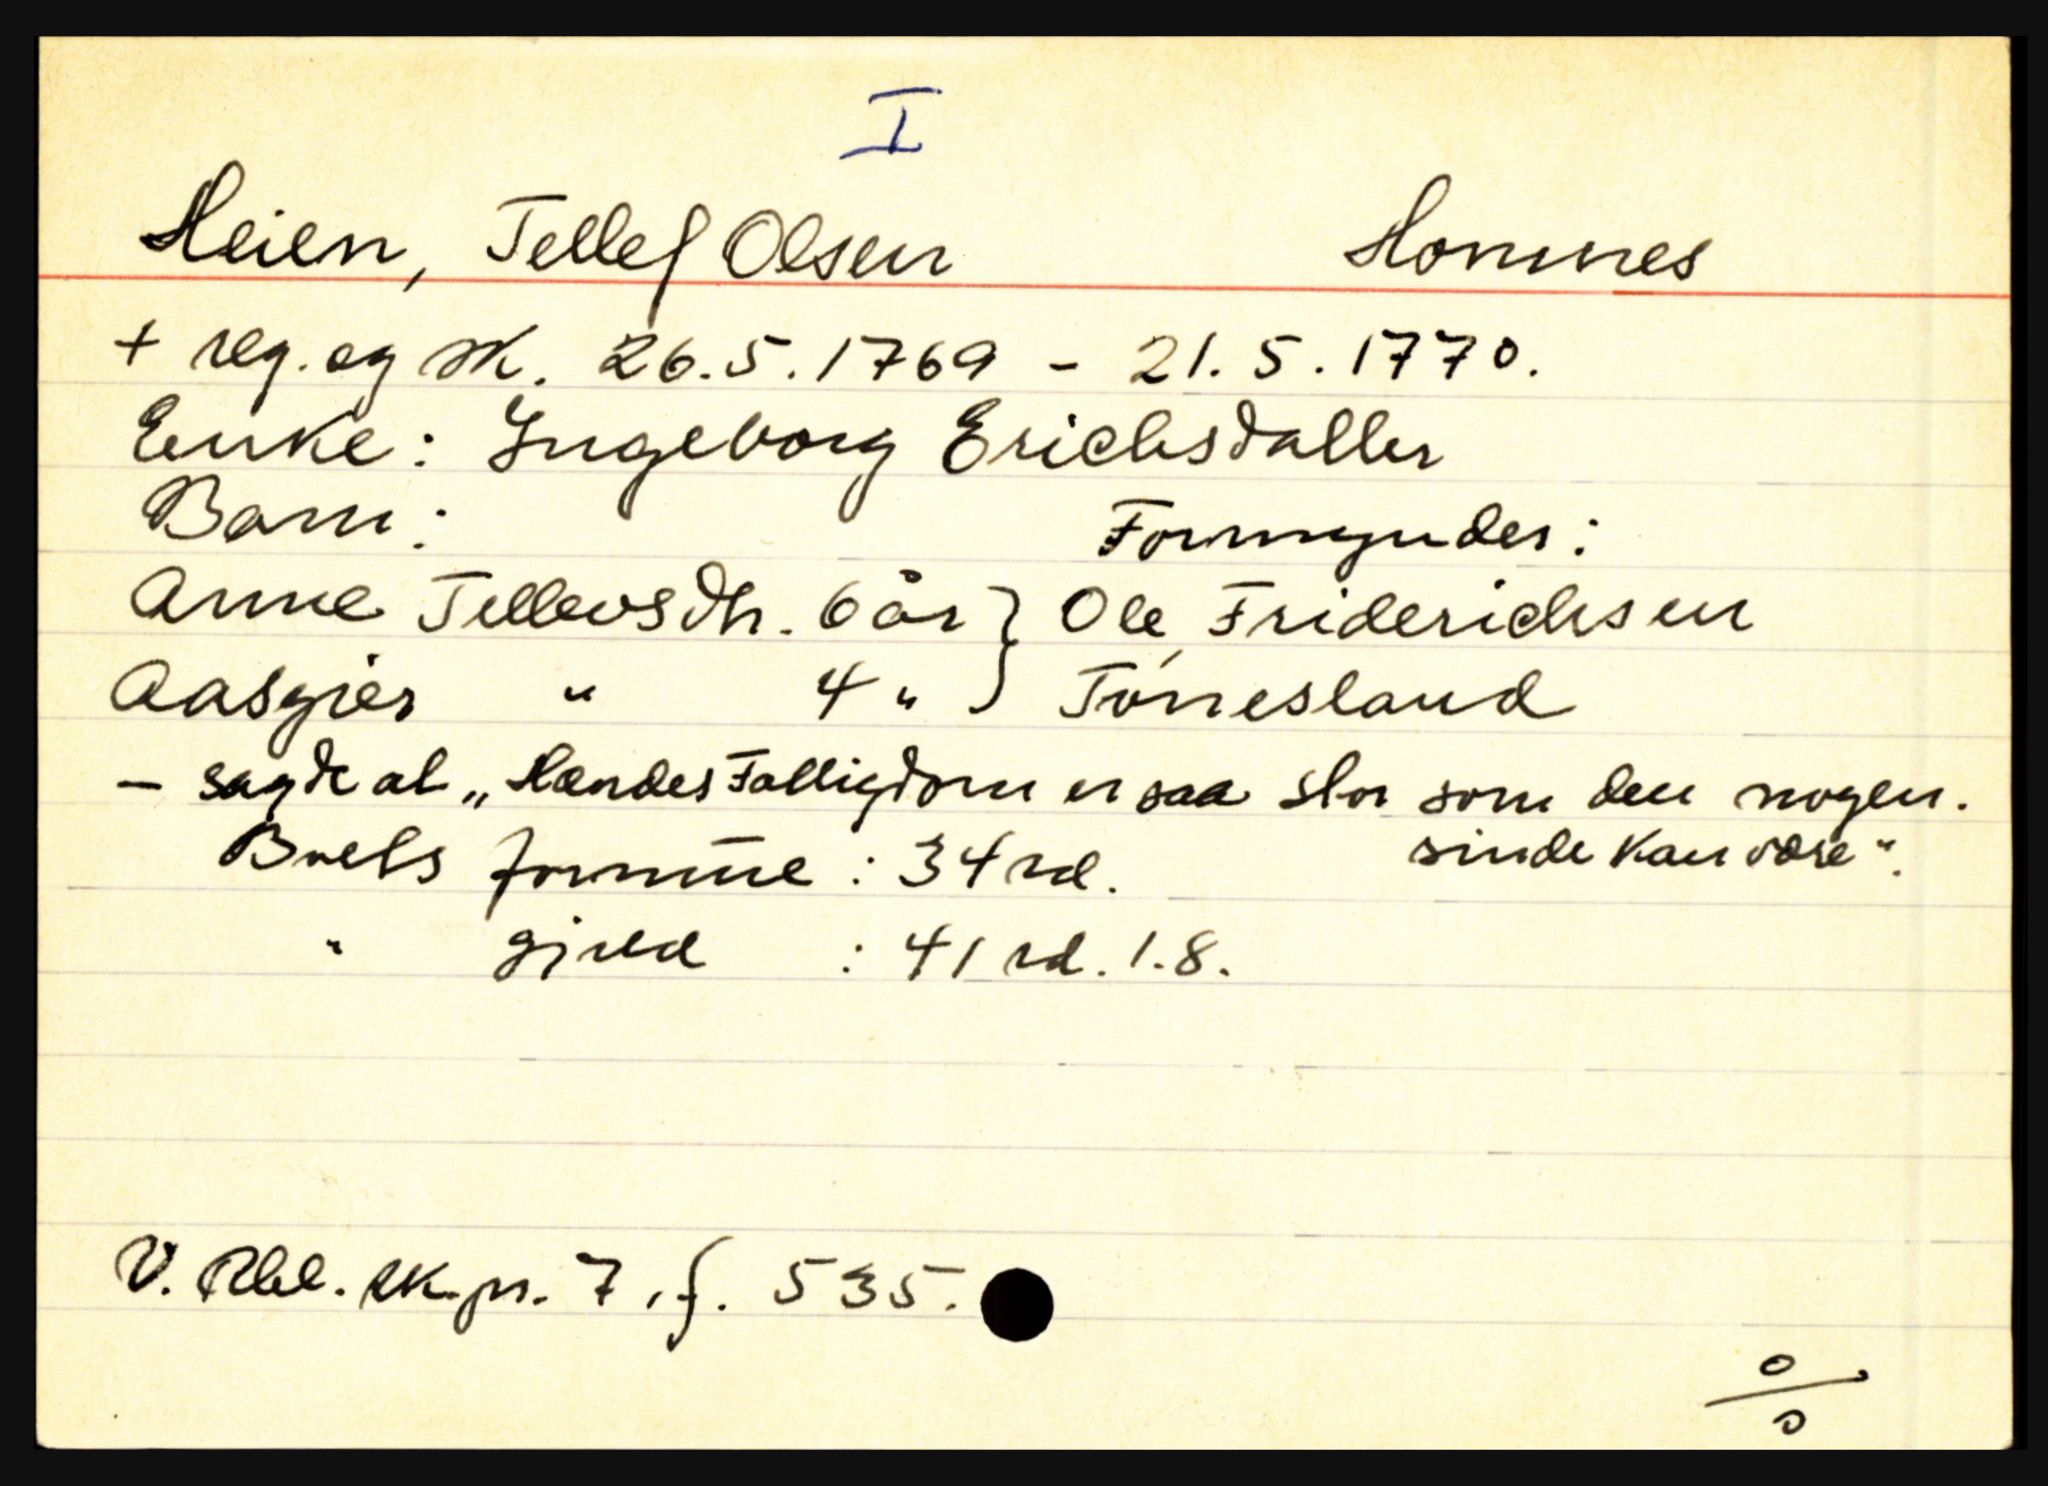 I
Heien, Tellef Olsen Hommes
+ reg. og sk. 26.5.1769 - 21.5.1770.
Enke: Ingeborg Erichsdatter
Barn: Formynder:
Anne Tellevsdtr. 6 år } Ole Friderichsen
Aasgier " 4 " } Tónnesland
- sagde at „Hændes Fattigdom er saa stor som den nogen-
sinde kan være".
Boets formúe : 34 rd.
" gjeld : 41 rd. 1.8.
V. Rbd. sk.pr. 7, f. 535.
0/0